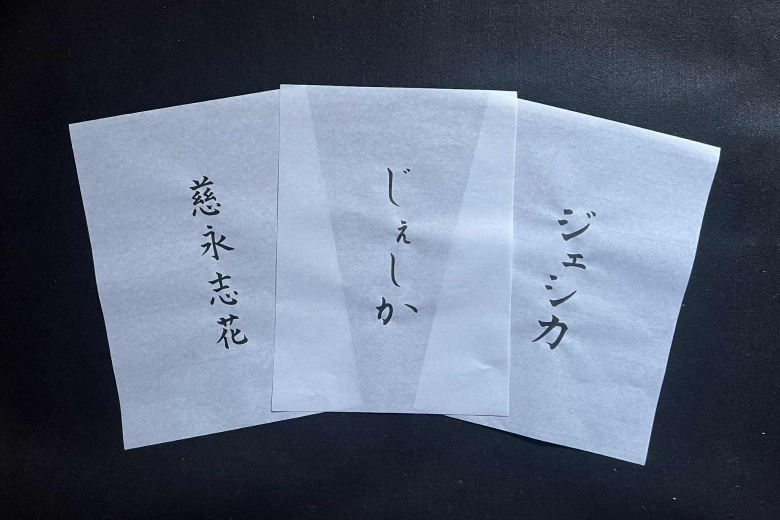 慈永志花
じぇしか
ジェシカ